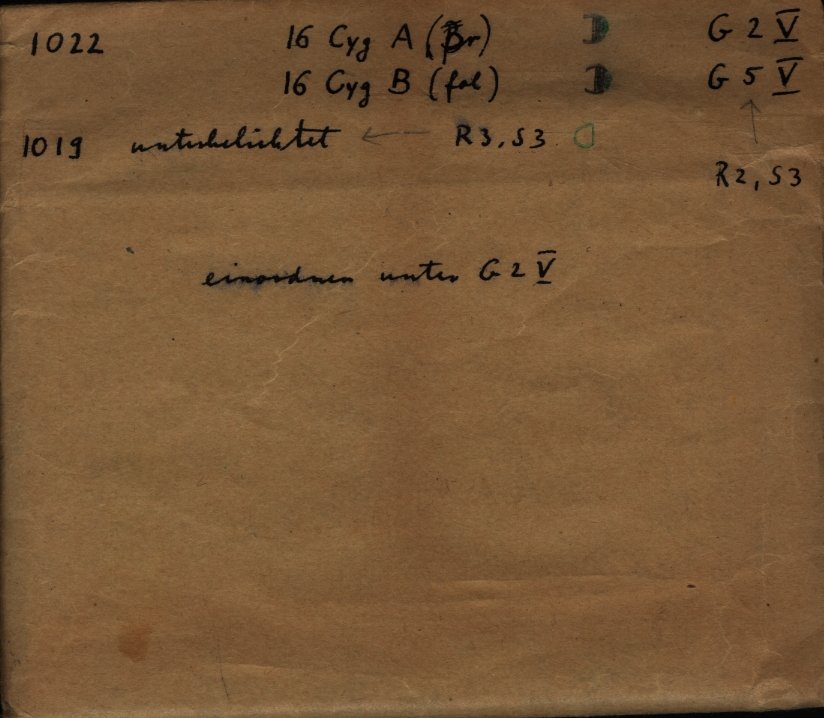 1022 16 Cyg A (pr) G 2 V
16 Cyg B (fol) G 5 V
1019 unterbelichtet ← R3, S3
R2, S3
einordnen unter G 2 V